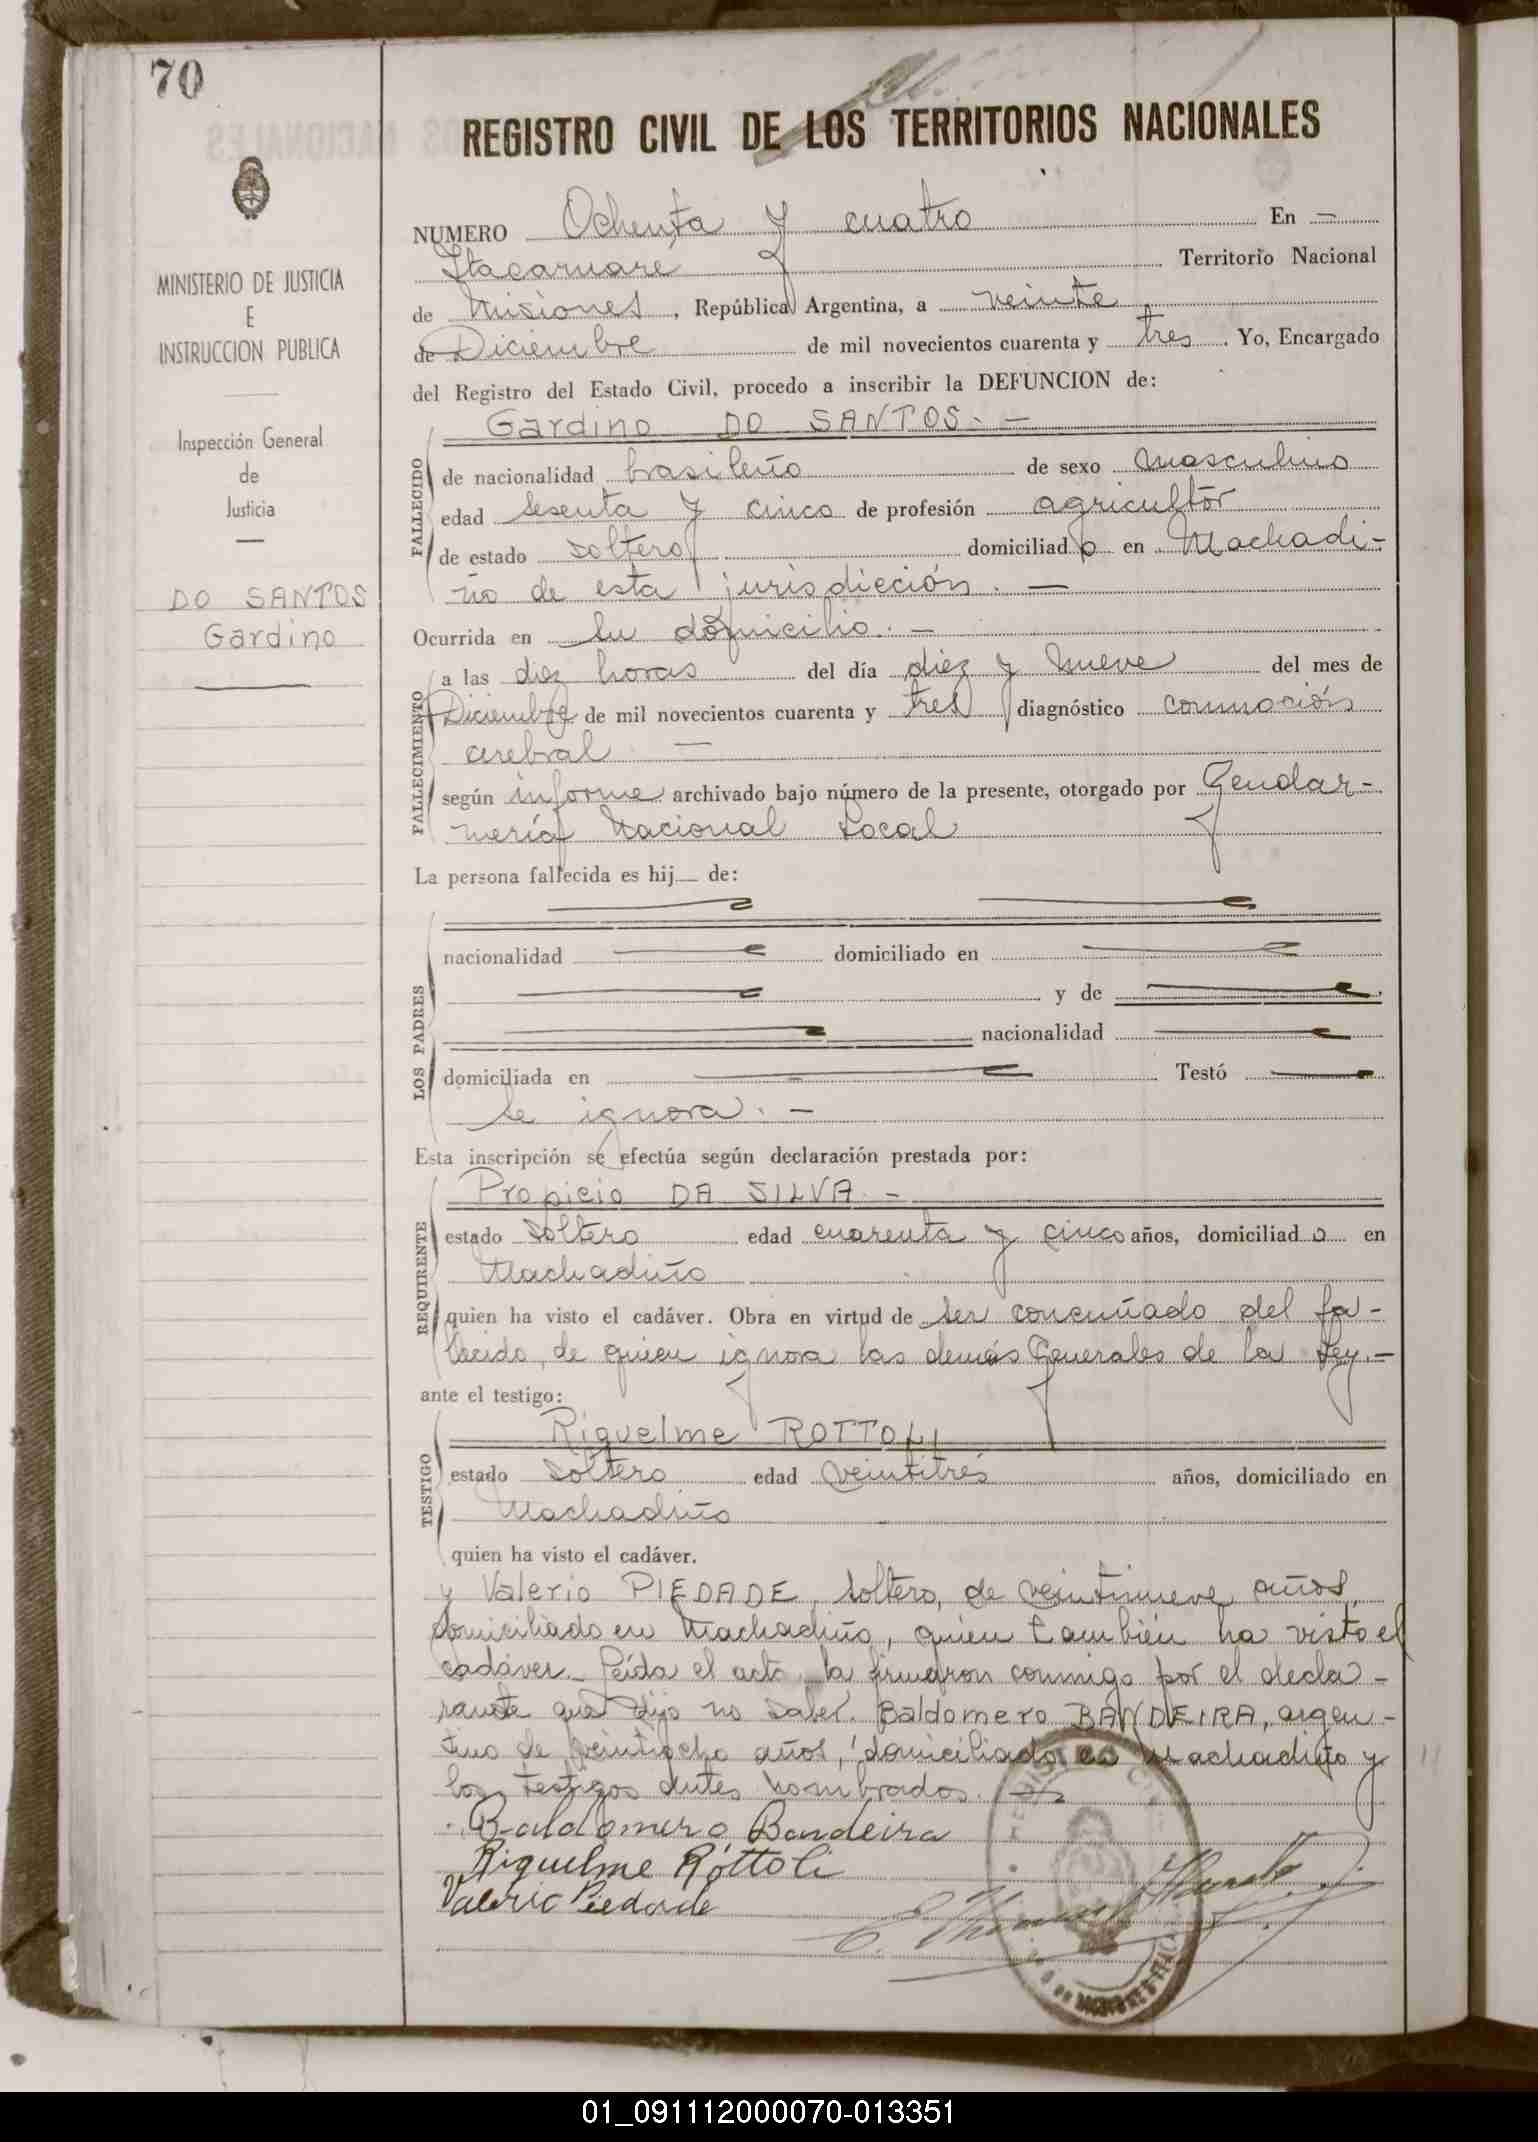 70
REGISTRO CIVIL DE LOS TERRITORIOS NACIONALES
MINISTERIO DE JUSTICIA
E
INSTRUCCION PUBLICA
Inspección General
de
Justicia
DO SANTOS
Gardino
NUMERO Ochenta y cuatro En —
Itacaruare Territorio Nacional
de Misiones, República Argentina, a veinte
de Diciembre de mil novecientos cuarenta y tres. Yo, Encargado
del Registro del Estado Civil, procedo a inscribir la DEFUNCION de:
Gardino DO SANTOS. —
FALLECIDO
de nacionalidad brasileño de sexo masculino
edad sesenta y cinco de profesión agricultor
de estado soltero domiciliado en Machadi-
ño de esta jurisdicción. —
Ocurrida en su domicilio. —
FALLECIMIENTO
a las diez horas del día diez y nueve del mes de
Diciembre de mil novecientos cuarenta y tres diagnóstico conmoción
cerebral —
según informe archivado bajo número de la presente, otorgado por Gendar-
mería Nacional Local
La persona fallecida es hij— de:
LOS PADRES
nacionalidad domiciliado en
y de
nacionalidad
domiciliada en Testó
se ignora. —
Esta inscripción se efectúa según declaración prestada por:
REQUIRENTE
Propicio DA SILVA. —
estado soltero edad cuarenta y cinco años, domiciliado en
Machadiño
quien ha visto el cadáver. Obra en virtud de ser concuñado del fa-
llecido, de quien ignora las demás Generales de la Ley. —
ante el testigo:
TESTIGO
Riquelme ROTTOLI
estado soltero edad veintitrés años, domiciliado en
Machadiño
quien ha visto el cadáver.
y Valerio PIEDADE, soltero, de veintinueve años,
domiciliado en Machadiño, quien también ha visto el
cadáver. Leída el acta la firmaron conmigo por el decla-
rante que dijo no saber. Baldomero BANDEIRA, argen-
tino de veintiocho años, domiciliado en Machadiño y
los testigos antes nombrados.
Baldomero Bandeira
Riquelme Róttoli
Valerio Piedade
01_091112000070-013351